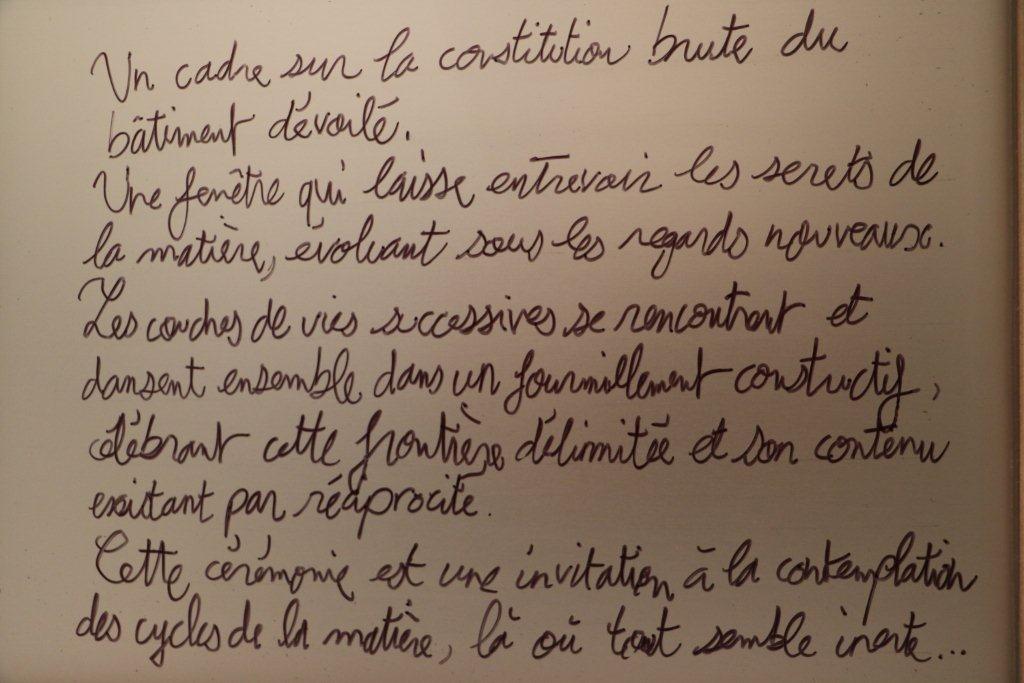 Un cadre sur la constitution brute du
bâtiment dévoilé.
Une fenêtre qui laisse entrevoir les serets de
la matière, évoluant sous les regards nouveaux.
Les couches de vies successives se rencontrent et
dansent ensemble dans un fourmillement constructif,
célébrant cette frontière délimitée et son contenu
existant par réciprocité.
Cette cérémonie est une invitation à la contemplation
des cycles de la matière, là où tout semble inerte...